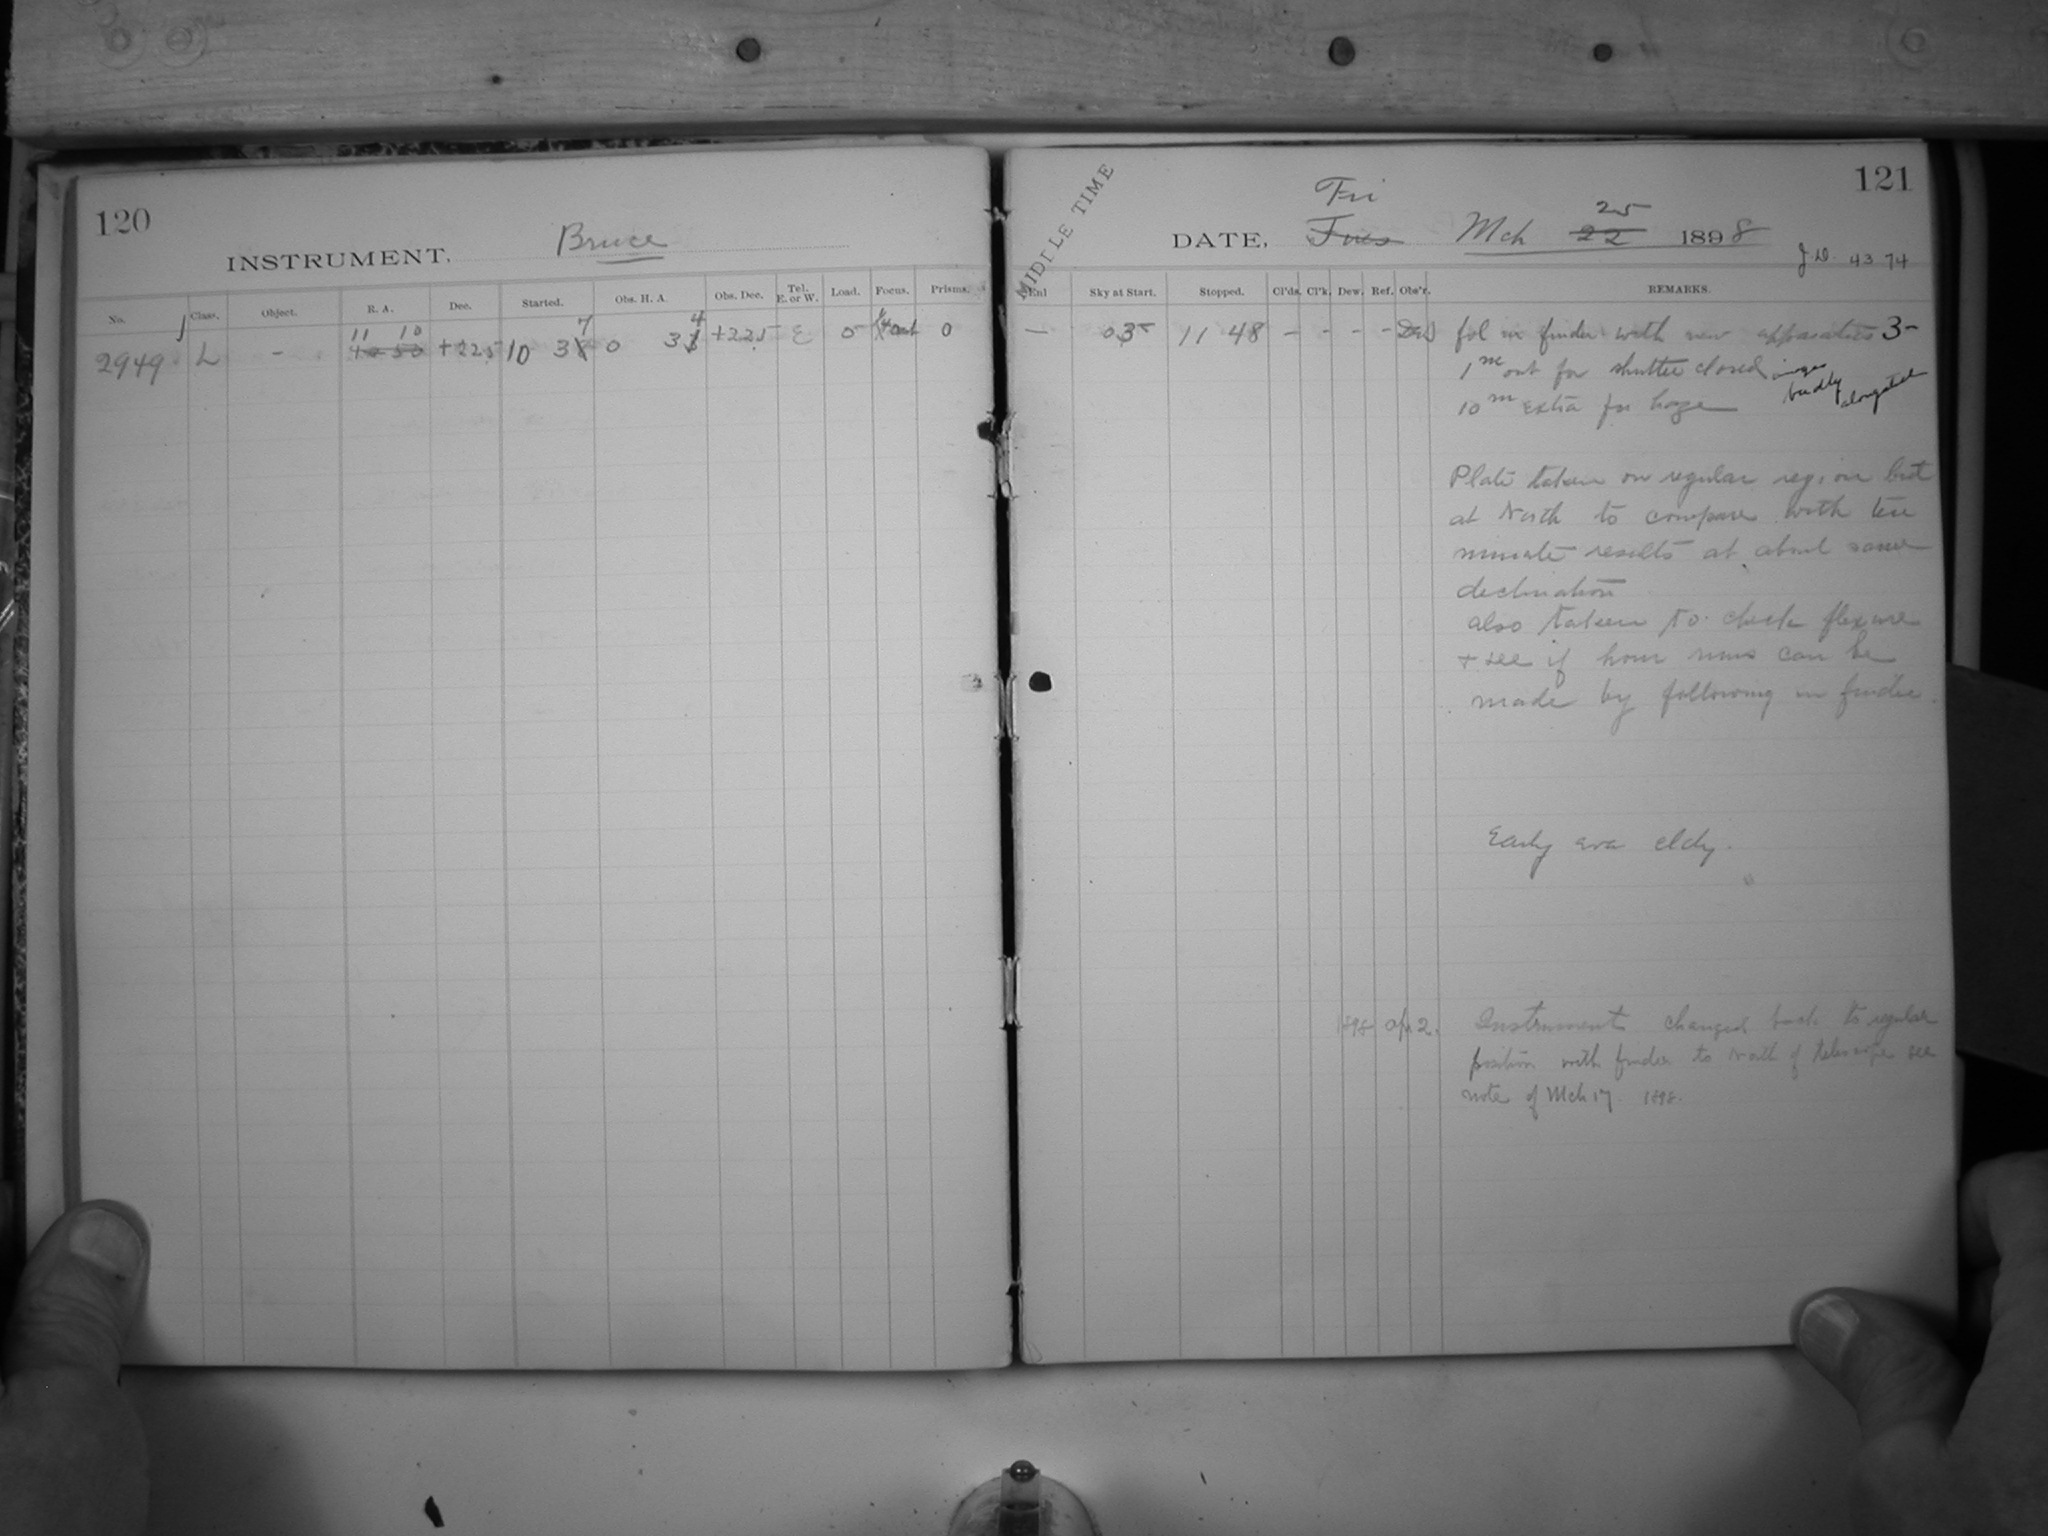 120
INSTRUMENT, Bruce
No. Class. Object. R. A. Dec. Started. Obs. H. A. Obs. Dec. Tel. E. or W. Load. Focus. Prisms.
11 10 7 4
2949 L - 10 50 +225 10 38 0 3 +225 E 5 out 0
MIDDLE TIME
121
Fri
25
DATE, Tues Mch 22 1898
J.D. 43 74
Enl Sky at Start. Stopped. Cl'ds. Cl'k. Dew. Ref. Obs'r. REMARKS.
— 035 11 48 - - - - fol in finder with new apparatus 3-
1 m out for shutter closed images badly elongated
10 m extra for haze
Plate taken on regular region but
at North to compare with ten
minute results at about same
declination
also taken to check flexure
+ see if hour runs can be
made by following in finder.
Early eve cldy.
1898 Ap 2. Instrument changed back to regular
position with finder to North of telescope see
note of Mch 17. 1898.